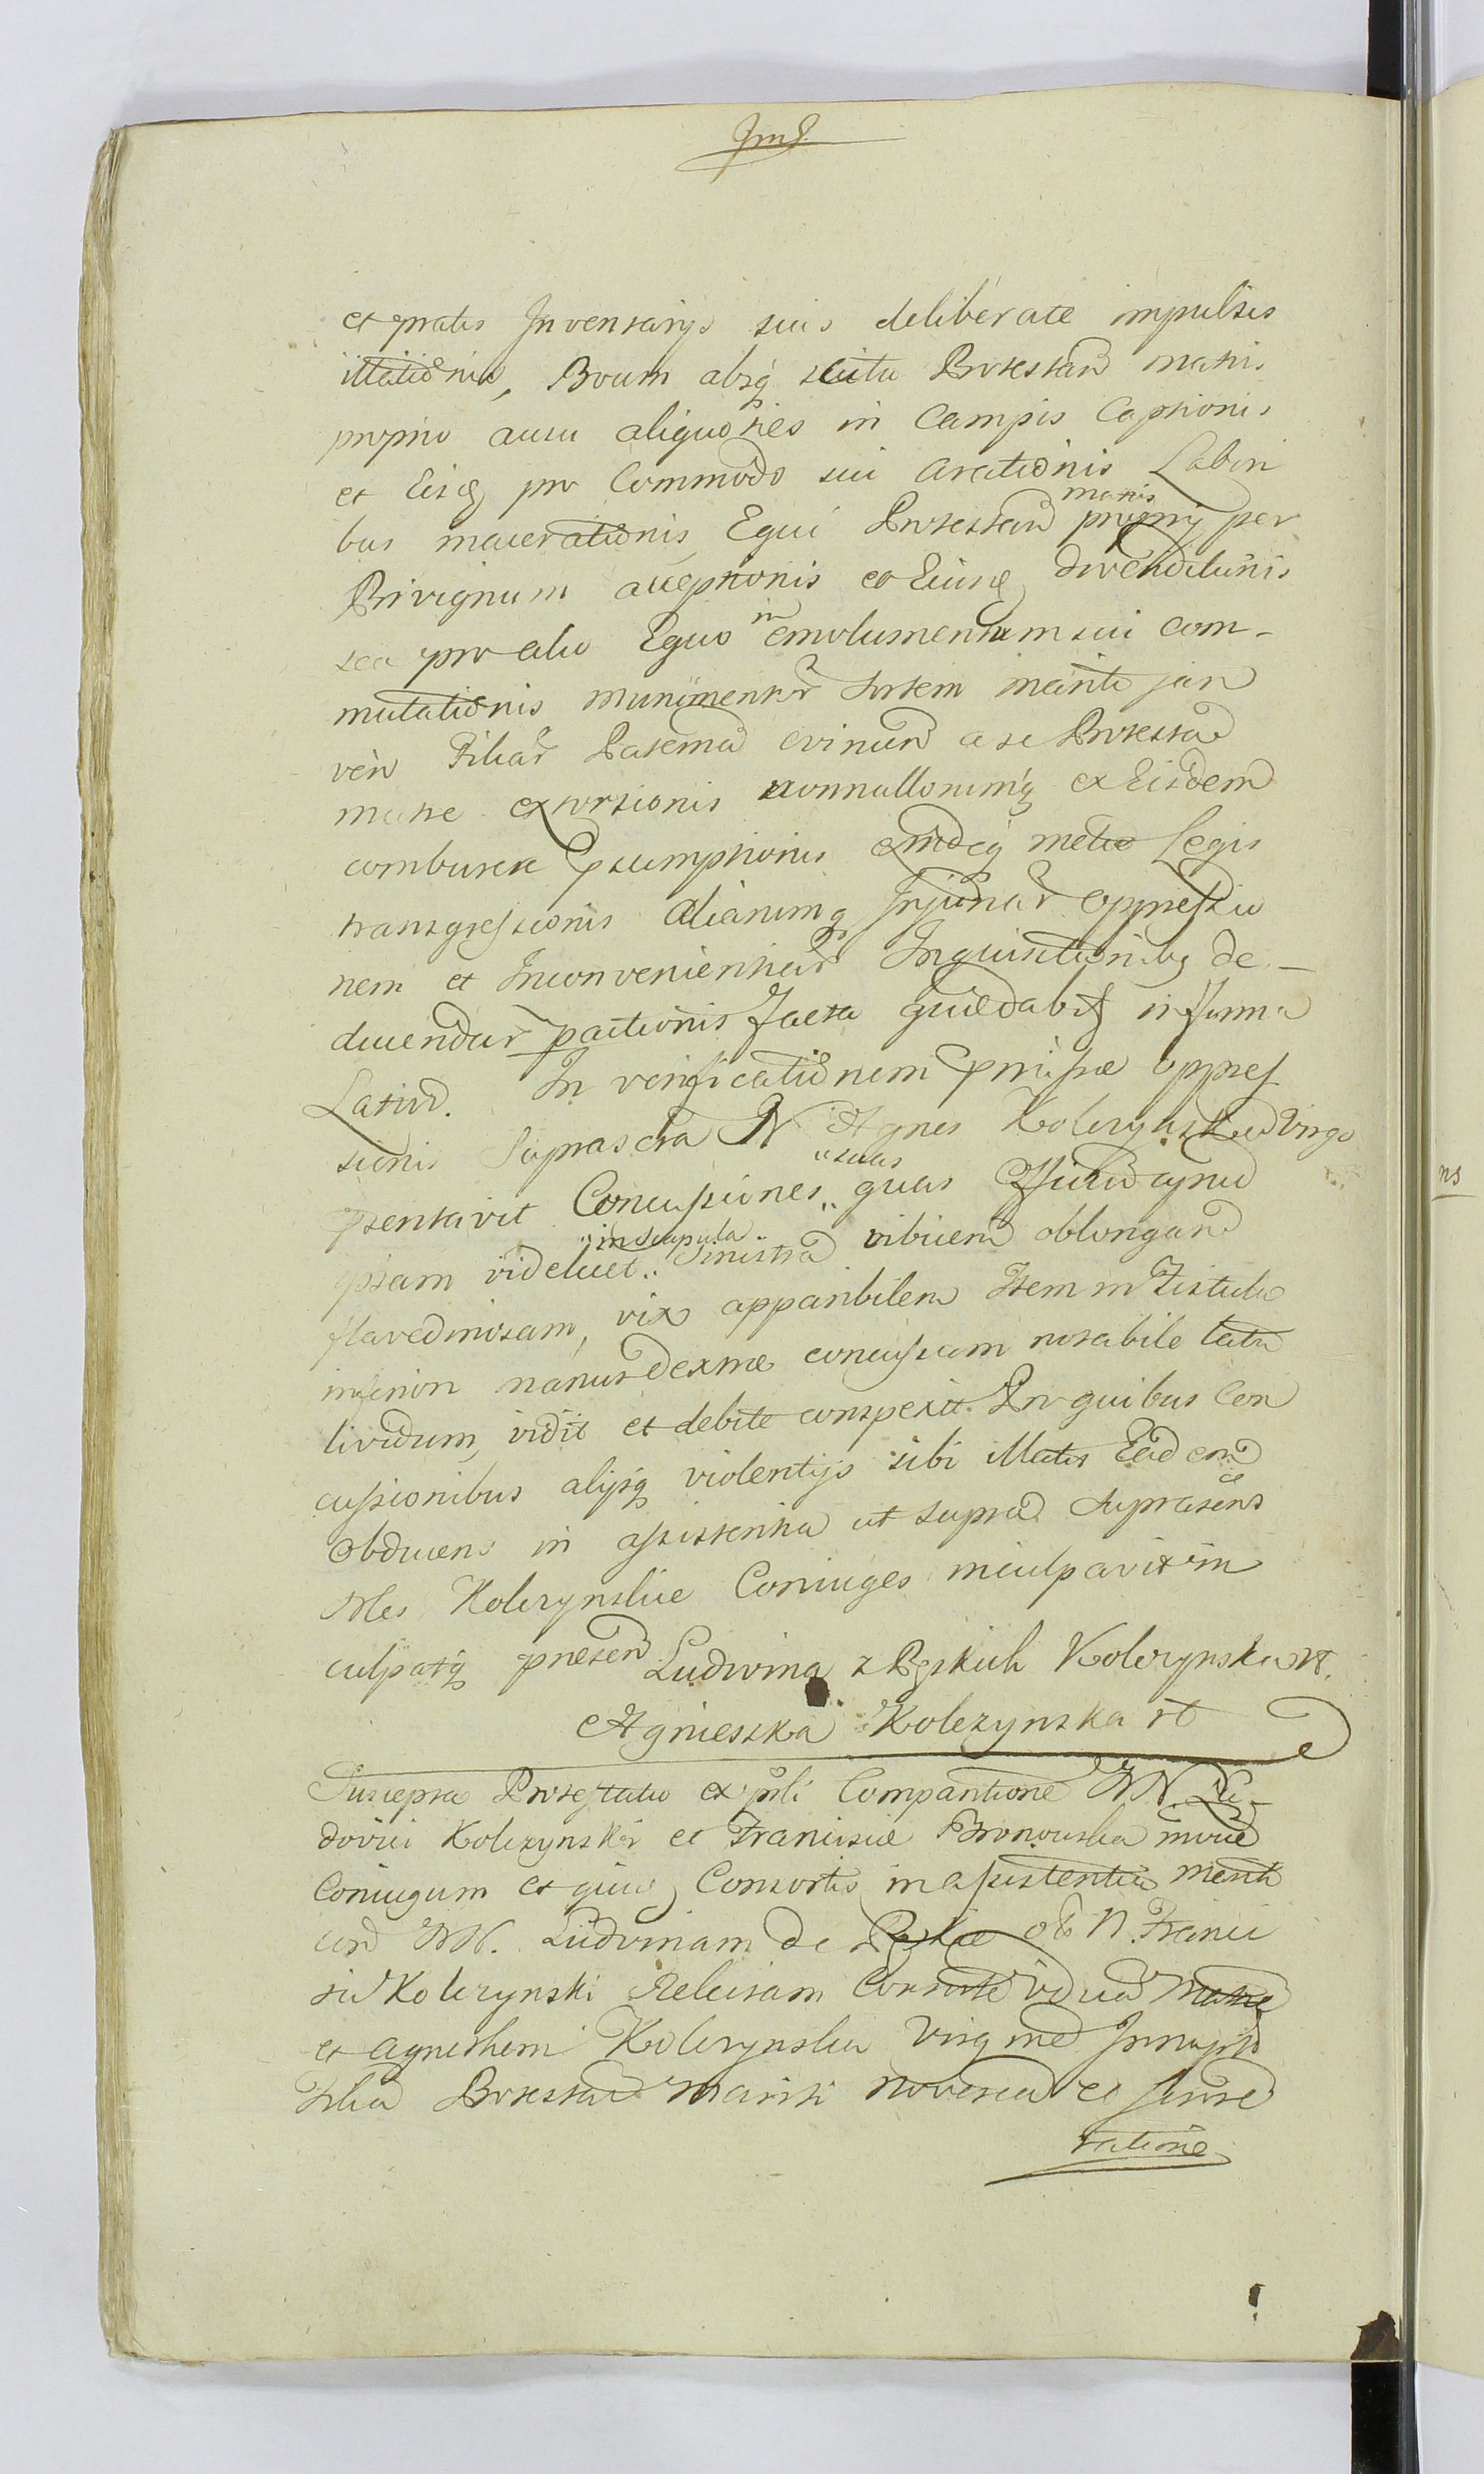 et pratis Inventarijs suis deliberate impulsis
illationis, Boum absq scitu Protestan matris
proprio ausu aliquoties in Campis Captionis
et Eisq pro Commodo sui arationis Labori
bus macerationis Equi Protestan matris proprij per
Privignum acceptionis et Eiusq divenditionis
seu pro alio Equo in emolumentum sui com-
mutationis munimentor sortem mariti jan
vero Filiar Paterna a se Protestan
matre extorsionis nonnullorumq ex Eisdem
comburere psumptionis metu Legis
transgressionis aliarumq Injuriar oppressio
nem et Inconvenientiar Inquisitionibq de-
ducendar patrationis facta quaedabit in forma
Latiori. In verificationem pmissae oppres
sionis Suprascta N Agnes Kolczynska Virgo
psentavit Concussiones suas quas Officiu apud
ipsam videlicet in scapula sinistra vibicem oblongam
flavedinosam, vix apparibilem Item in Fistula
inferiori manus dextrae concussum notabile late
lividum, vidit et debite conspexit. Pro quibus Con
cussionibus alijsq violentijs sibi illatis Eadem
obducens in assistentia ut supra Suprascns
Nles Kolczynskie Coniuges inculpavit in
culpatq praesen Ludwina z Rskich Kolczynska W.
Agnieszka Kolczynska rt
Suscepta Protestatio ex psli Comparitione NN. Lu-
dovici Kolczynski et Franciscae Bronowska invice
Coniugum et quidem Consortis in assistentia mariti
con NN. Ludvinam de ol N. Franci
sci Kolczynski Relictam Consorte vidua Matre
et Agnethem Kolczynska Virgine Innupta
Filia Protestan Mariti noverca et sorore
ratione